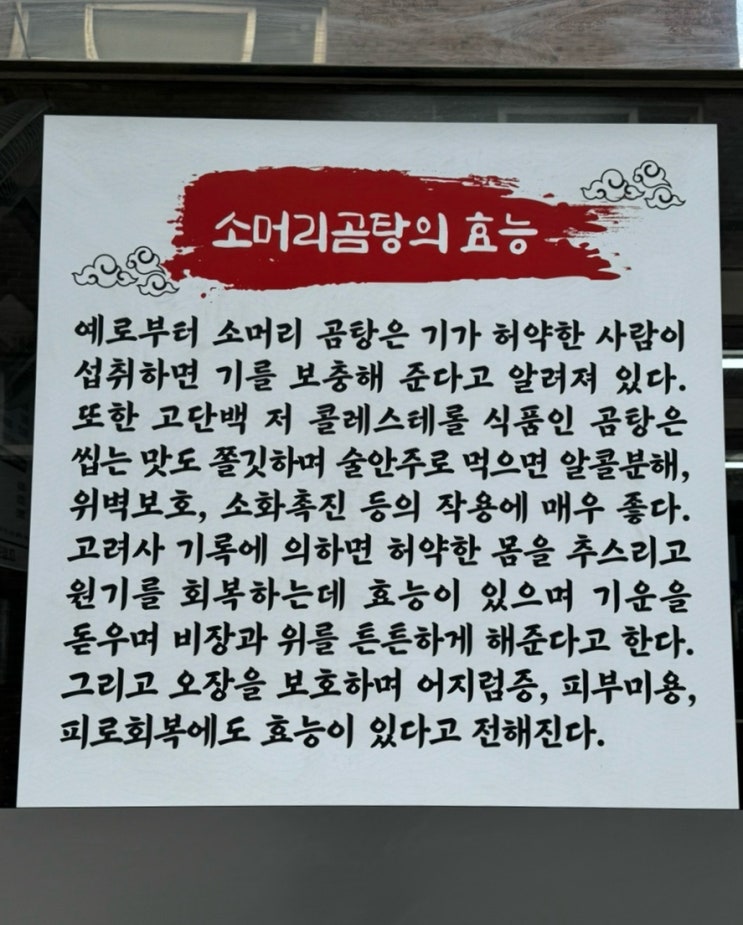 소머리곰탕의 효능
예로부터 소머리 곰탕은 기가 허약한 사람이
섭취하면 기를 보충해 준다고 알려져 있다.
또한 고단백 저 콜레스테롤 식품인 곰탕은
씹는 맛도 쫄깃하며 술안주로 먹으면 알콜분해,
위벽보호, 소화촉진 등의 작용에 매우 좋다.
고려사 기록에 의하면 허약한 몸을 추스리고
원기를 회복하는데 효능이 있으며 기운을
돋우며 비장과 위를 튼튼하게 해준다고 한다.
그리고 오장을 보호하며 어지럼증, 피부미용,
피로회복에도 효능이 있다고 전해진다.